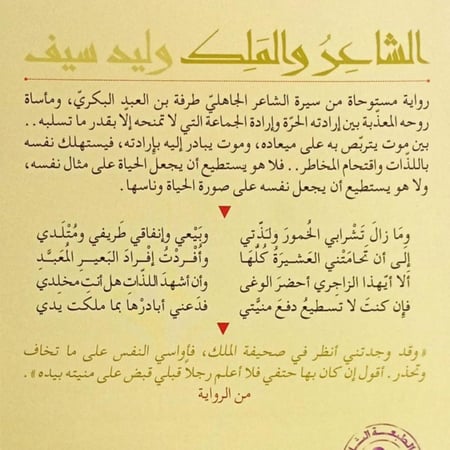 الشاعِرُ والمَلِك وليد سيف
رواية مستوحاة من سيرة الشاعر الجاهليّ طرفة بن العبد البكريّ، ومأساة
روحه المعذّبة بين إرادته الحرّة وإرادة الجماعة التي لا تمنحه إلا بقدر ما تسلبه..
بين موت يتربّص به على ميعاده، وموت يبادر إليه بإرادته، فيستهلك نفسه
باللذّات واقتحام المخاطر.. فلا هو يستطيع أن يجعل الحياة على مثال نفسه،
ولا هو يستطيع أن يجعل نفسه على صورة الحياة وناسها.
ومَا زالَ تَشْرابي الخُمورَ ولذّتي وبَيْعي وإنفاقي طَريفي ومُتْلَدي
إلى أن تحامَتْني العشيرَةُ كُلُّها وأُفْردْتُ إفْرادَ البَعيرِ المُعَبَّدِ
ألا أيّهذا الزاجري أحضرَ الوغى وأن أشهدَ اللذّاتِ هل أنتَ مخلدِي
فإن كنتَ لا تَسطيعُ دفعَ منيَّتي فدَعني أبادرْها بما ملكت يدي
«وقد وجدتني أنظر في صحيفة الملك، فأواسي النفس على ما تخاف
وتحذر. أقول إن كان بها حتفي فلا أعلم رجلاً قبلي قبض على منيته بيده».
من الرواية